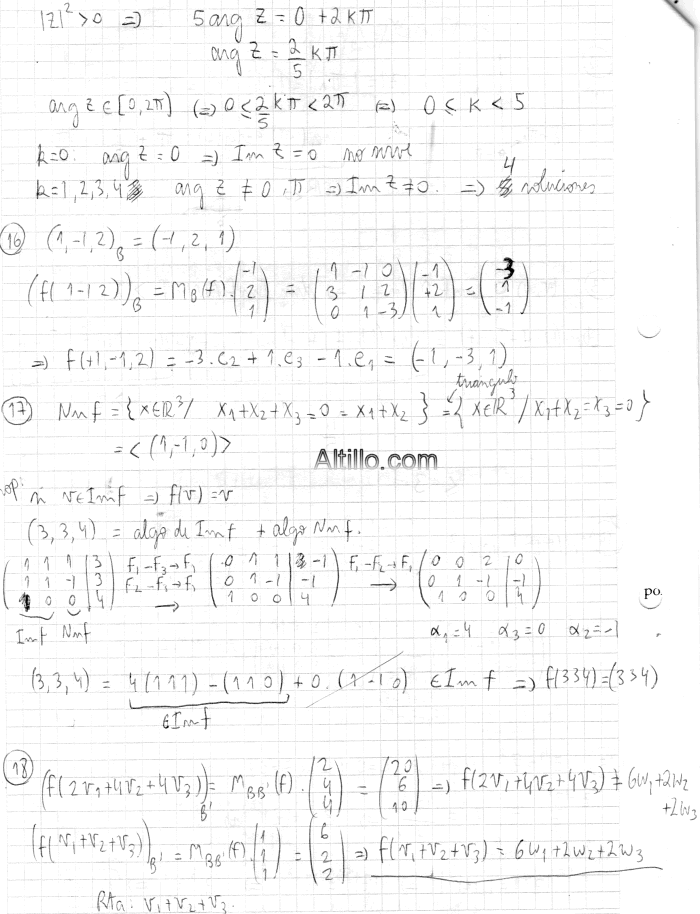 |z|² > 0 ⇒ 5 arg z = 0 + 2kπ
arg z = 2/5 kπ
arg z ∈ [0, 2π) ⇔ 0 ≤ 2/5 kπ < 2π ⇔ 0 ≤ k < 5
k=0: arg z = 0 ⇒ Im z = 0 no sirve
k=1,2,3,4 arg z ≠ 0, π ⇒ Im z ≠ 0. ⇒ 4 soluciones
16 (1,-1,2)_B = (-1, 2, 1)
(f(1 -1 2))_B = M_B(f). (-1 2 1) = (1 -1 0 / 3 1 2 / 0 1 -3) (-1 +2 1) = (-3 1 -1)
⇒ f(+1,-1,2) = -3.e₂ + 1.e₃ - 1.e₁ = (-1, -3, 1)
triangulo
17 Nuf = {x∈ℝ³/ x₁+x₂+x₃=0 = x₁+x₂} = {x∈ℝ³/ x₁+x₂=x₃=0}
= <(1,-1,0)>
Altillo.com
prop: si v∈Imf ⇒ f(v) = v
(3,3,4) = algo de Imf + algo Nuf.
(1 1 1 | 3 / 1 1 -1 | 3 / 1 0 0 | 4) F₁-F₃→F₁ F₂-F₁→F₁ → (0 1 1 | -1 / 0 1 -1 | -1 / 1 0 0 | 4) F₁-F₂→F₁ → (0 0 2 | 0 / 0 1 -1 | -1 / 1 0 0 | 4)
po.
Imf Nuf α₁=4 α₃=0 α₂=-1
(3,3,4) = 4(1 1 1) - (1 1 0) + 0.(1 -1 0) ∈ Imf ⇒ f(334)=(334)
∈Imf
18 (f(2v₁+4v₂+4v₃))_B' = M_BB'(f). (2 4 4) = (20 6 10) ⇒ f(2v₁+4v₂+4v₃) ≠ 6w₁+2w₂
+2w₃
(f(v₁+v₂+v₃))_B' = M_BB'(f). (1 1 1) = (6 2 2) ⇒ f(v₁+v₂+v₃) = 6w₁+2w₂+2w₃
Rta: v₁+v₂+v₃.